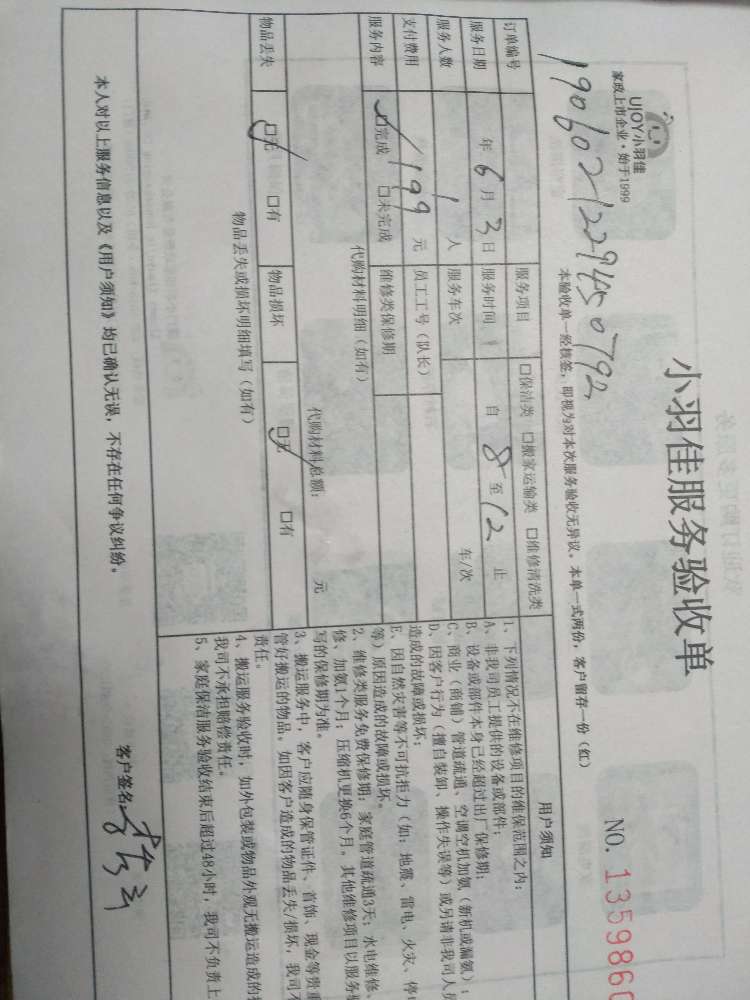 UJOY小羽佳
家政上市企业·始于1999
小羽佳服务验收单
NO. 1359860
1906021229450792
本验收单一经核签，即视为对本次服务验收无异议。本单一式两份，客户留存一份（红）
订单编号 服务项目 □保洁类 □搬家运输类 □维修清洗类
服务日期 年 6 月 3 日 服务时间 自 8 至 12 止
服务人数 1 人 服务车次 车/次
支付费用 199 元 员工工号（队长）
服务内容 ☑完成 □未完成 维修类保修期
代购材料明细（如有）
代购材料总额： 元
物品丢失 ☑无 □有 物品损坏 ☑无 □有
物品丢失或损坏明细填写（如有）
用户须知
1、下列情况不在维修项目的维保范围之内：
A、非我司员工提供的设备或部件；
B、设备或部件本身已经超过出厂保修期；
C、商业（商铺）管道疏通、空调空机加氨（新机或漏氨）；
D、因客户行为（擅自装卸、操作失误等）或另请非我司人员
造成的故障或损坏；
E、因自然灾害等不可抗拒力（如：地震、雷电、火灾、停电
等）原因造成的故障或损坏。
2、维修类服务免费保修期：家庭管道疏通3天；水电维修、
修、加氨1个月；压缩机更换6个月。其他维修项目以服务
写的保修期为准。
3、搬运服务中，客户应随身保管证件、首饰、现金等贵重
管好搬运的物品。如因客户造成的物品丢失/损坏，我司不
责任。
4、搬运服务验收时，如外包装或物品外观无搬运造成的
我司不承担赔偿责任。
5、家庭保洁服务验收结束后超过48小时，我司不负责上
本人对以上服务信息以及《用户须知》均已确认无误，不存在任何争议纠纷。
客户签名